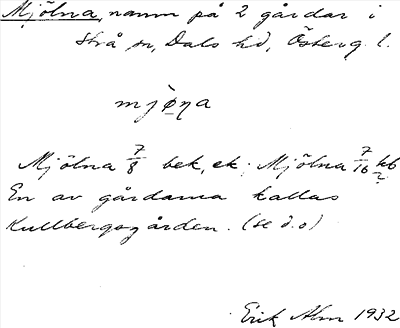 Mjölna, namn på 2 gårdar i
Strå sn, Dals hd, Österg. l.
mjø̀ŋa
Mjölna 7/8 bek, ek; Mjölna 7/16 kb
En av gårdarna kallas
Kullbergsgården. (se d.o)
Erik Alm 1932